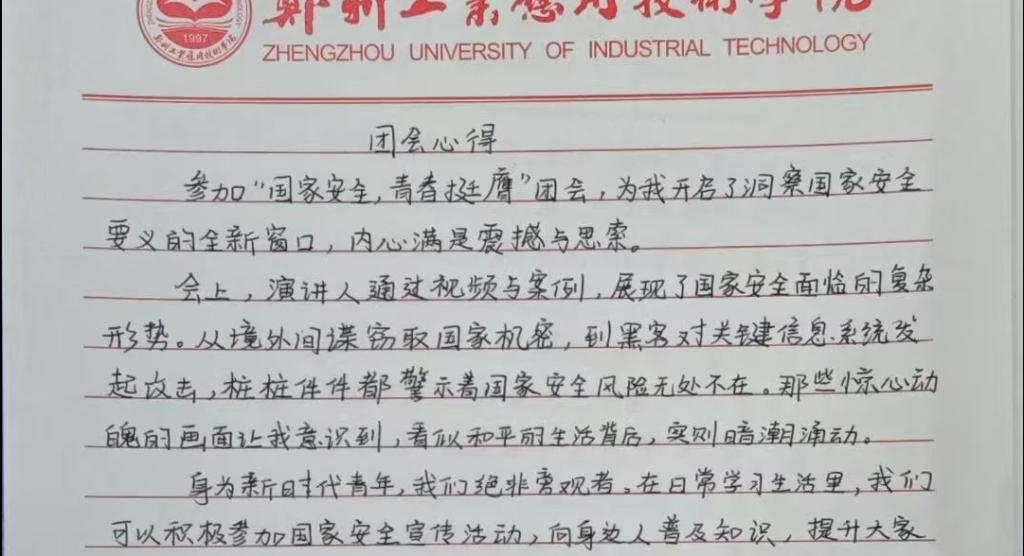 郑州工业应用技术学院
ZHENGZHOU UNIVERSITY OF INDUSTRIAL TECHNOLOGY
1997
团会心得
参加“国家安全,青春挺膺”团会,为我开启了洞察国家安全
要义的全新窗口,内心满是震撼与思索。
会上,演讲人通过视频与案例,展现了国家安全面临的复杂
形势。从境外间谍窃取国家机密,到黑客对关键信息系统发
起攻击,桩桩件件都警示着国家安全风险无处不在。那些惊心动
魄的画面让我意识到,看似和平的生活背后,实则暗潮涌动。
身为新时代青年,我们绝非旁观者。在日常学习生活里,我们
可以积极参加国家安全宣传活动,向身边人普及知识,提升大家